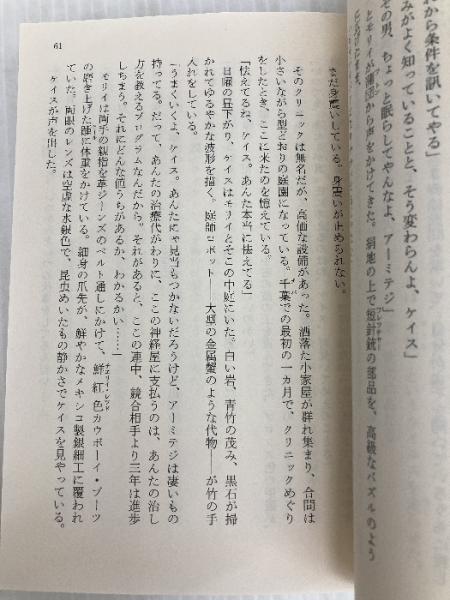 れから条件を訊いてやる」
みがよく知っていることと、そう変わらんよ、ケイス」
その男、ちょっと眠らしてやんなよ、アーミテジ」
とモリイが蒲団から声をかけてきた。絹地の上で短針銃の部品を、高級なパズルのよう
フレッチャー
まだ身震いしている。身震いが止められない。
そのクリニックは無名だが、高価な設備があった。洒落た小家屋が群れ集まり、合間は
小さいながら型どおりの庭園になっている。千葉での最初の一カ月で、クリニックめぐり
チバ
をしたとき、ここに来たのを憶えている。
「怯えてるね、ケイス。あんた本当に怯えてる」
日曜の昼下がり、ケイスはモリイとそこの中庭にいた。白い岩、青竹の茂み、黒石が掃
かれてゆるやかな波形を描く。庭師ロボット――大型の金属蟹のような代物――が竹の手
入れをしている。
「うまくいくよ、ケイス。あんたにゃ見当もつかないだろうけど、アーミテジは凄いもの
持ってる。だって、あんたの治療代がわりに、ここの神経屋に支払うのは、あんたの治し
方を教えるプログラムなんだから。それがあると、ここの連中、競合相手より三年は進歩
しちまう。それにどんな値うちがあるか、わかるかい……」
モリイは両手の親指を革ジーンズのベルト通しにかけて、鮮紅色カウボーイ・ブーツ
チェリイ・レッド
の磨き上げた踵に体重をかけている。細身の爪先が、鮮やかなメキシコ製銀細工に覆われ
ていた。両眼のレンズは空虚な水銀色で、昆虫めいたもの静かさでケイスを見やっている。
ケイスが声を出した。
61